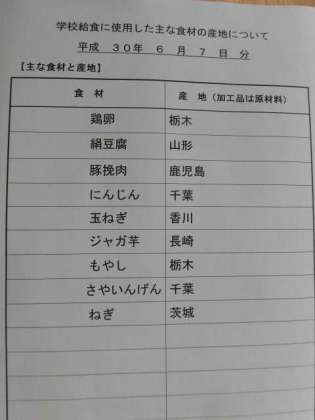 学校給食に使用した主な食材の産地について
平成 30年 6 月 7 日 分
【主な食材と産地】
食 材 産 地（加工品は原材料）
鶏卵 栃木
絹豆腐 山形
豚挽肉 鹿児島
にんじん 千葉
玉ねぎ 香川
ジャガ芋 長崎
もやし 栃木
さやいんげん 千葉
ねぎ 茨城